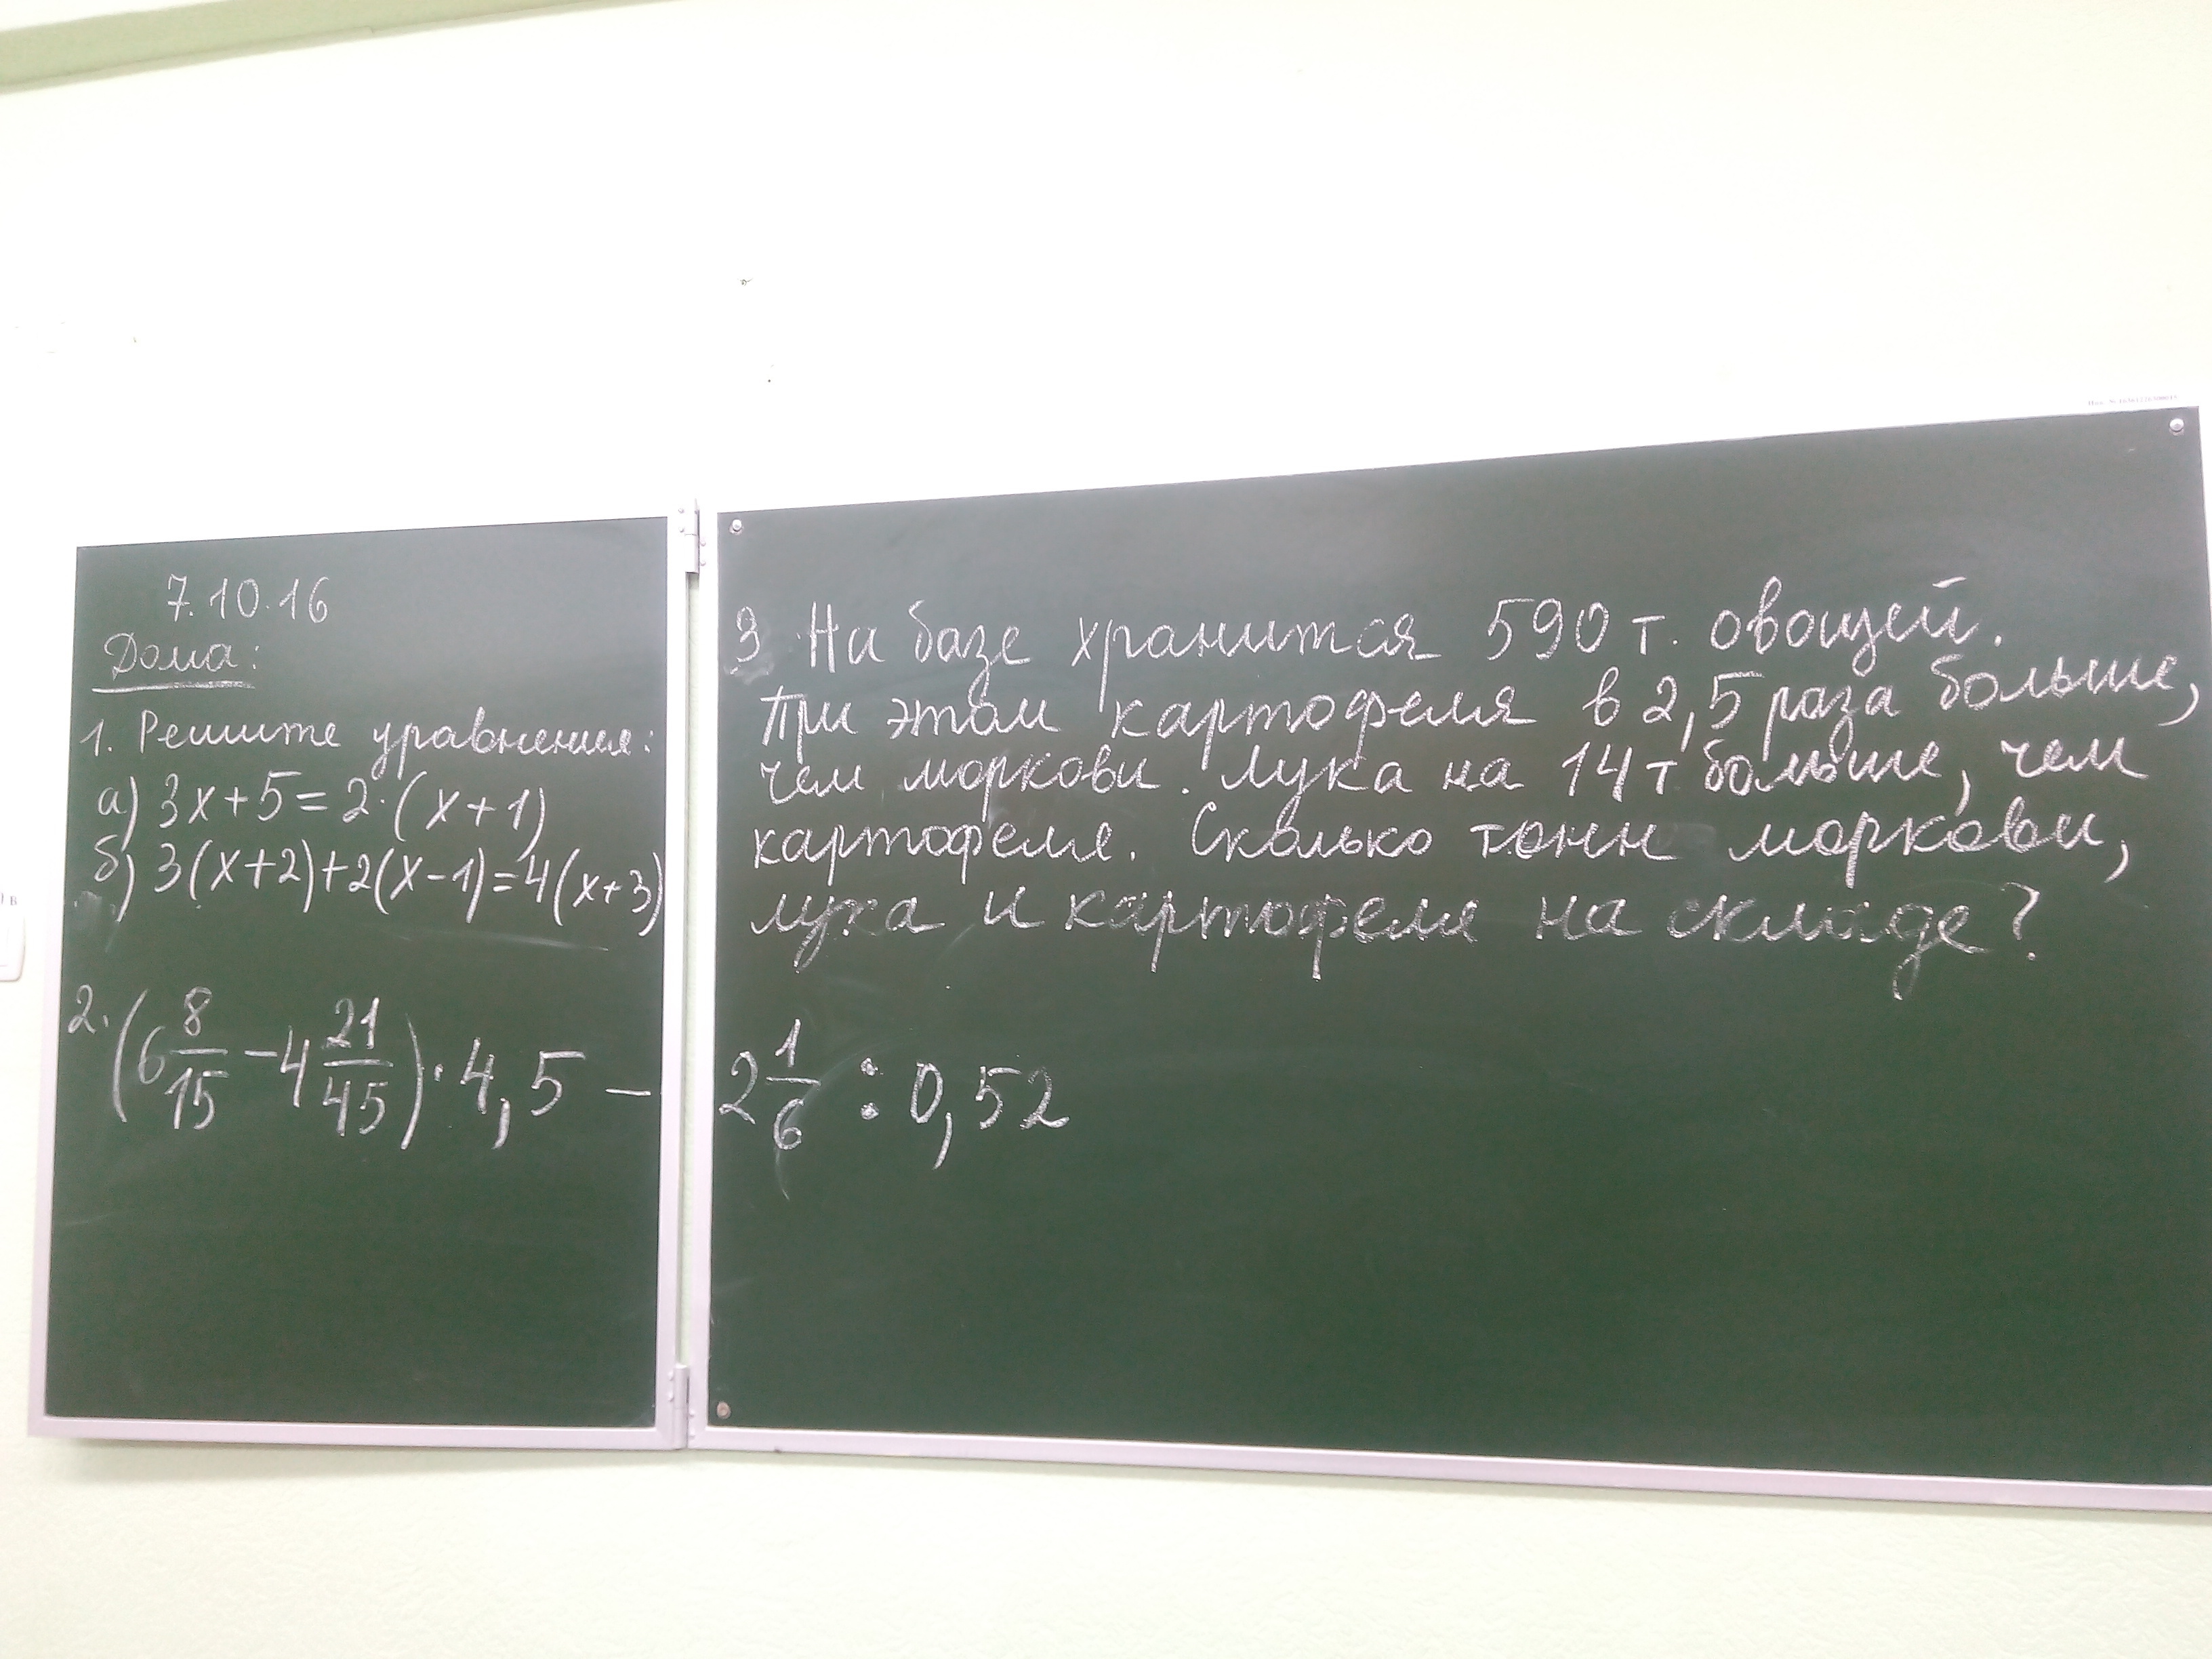 7.10.16
Дома:
1. Решите уравнения:
а) 3x+5=2·(x+1)
б) 3(x+2)+2(x-1)=4(x+3)
2. (6 8/15 - 4 21/45) · 4,5 - 2 1/6 : 0,52
3 На базе хранится 590 т. овощей.
При этом картофеля в 2,5 раза больше,
чем моркови. Лука на 14 т больше, чем
картофеля. Сколько тонн моркови,
лука и картофеля на складе?